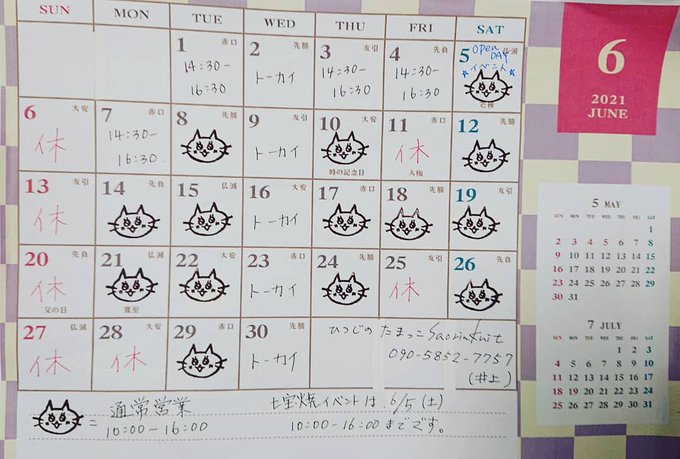 SUN MON TUE WED THU FRI SAT
1 赤口 2 先勝 3 友引 4 先負 5 仏滅
open DAY
イベント
14:30- トーカイ 14:30- 14:30-
16:30 16:30 16:30 芒種
6 大安 7 赤口 8 先勝 9 友引 10 先負 11 大安 12 先勝
休 14:30- トーカイ 休
16:30 時の記念日 入梅
13 友引 14 先負 15 仏滅 16 大安 17 赤口 18 先勝 19 友引
休 トーカイ
20 先負 21 仏滅 22 大安 23 赤口 24 先勝 25 友引 26 先負
休 トーカイ 休
父の日 夏至
27 仏滅 28 大安 29 赤口 30 先勝
休 休 トーカイ
ひつじの たまっこ
090-5852-7757
(井上)
= 通常営業 七宝焼イベントは 6/5(土)
10:00-16:00 10:00-16:00までです。
6
2021
JUNE
5 MAY
SUN MON TUE WED THU FRI SAT
1
2 3 4 5 6 7 8
9 10 11 12 13 14 15
16 17 18 19 20 21 22
23 24 25 26 27 28 29
30 31
7 JULY
SUN MON TUE WED THU FRI SAT
1 2 3
4 5 6 7 8 9 10
11 12 13 14 15 16 17
18 19 20 21 22 23 24
25 26 27 28 29 30 31